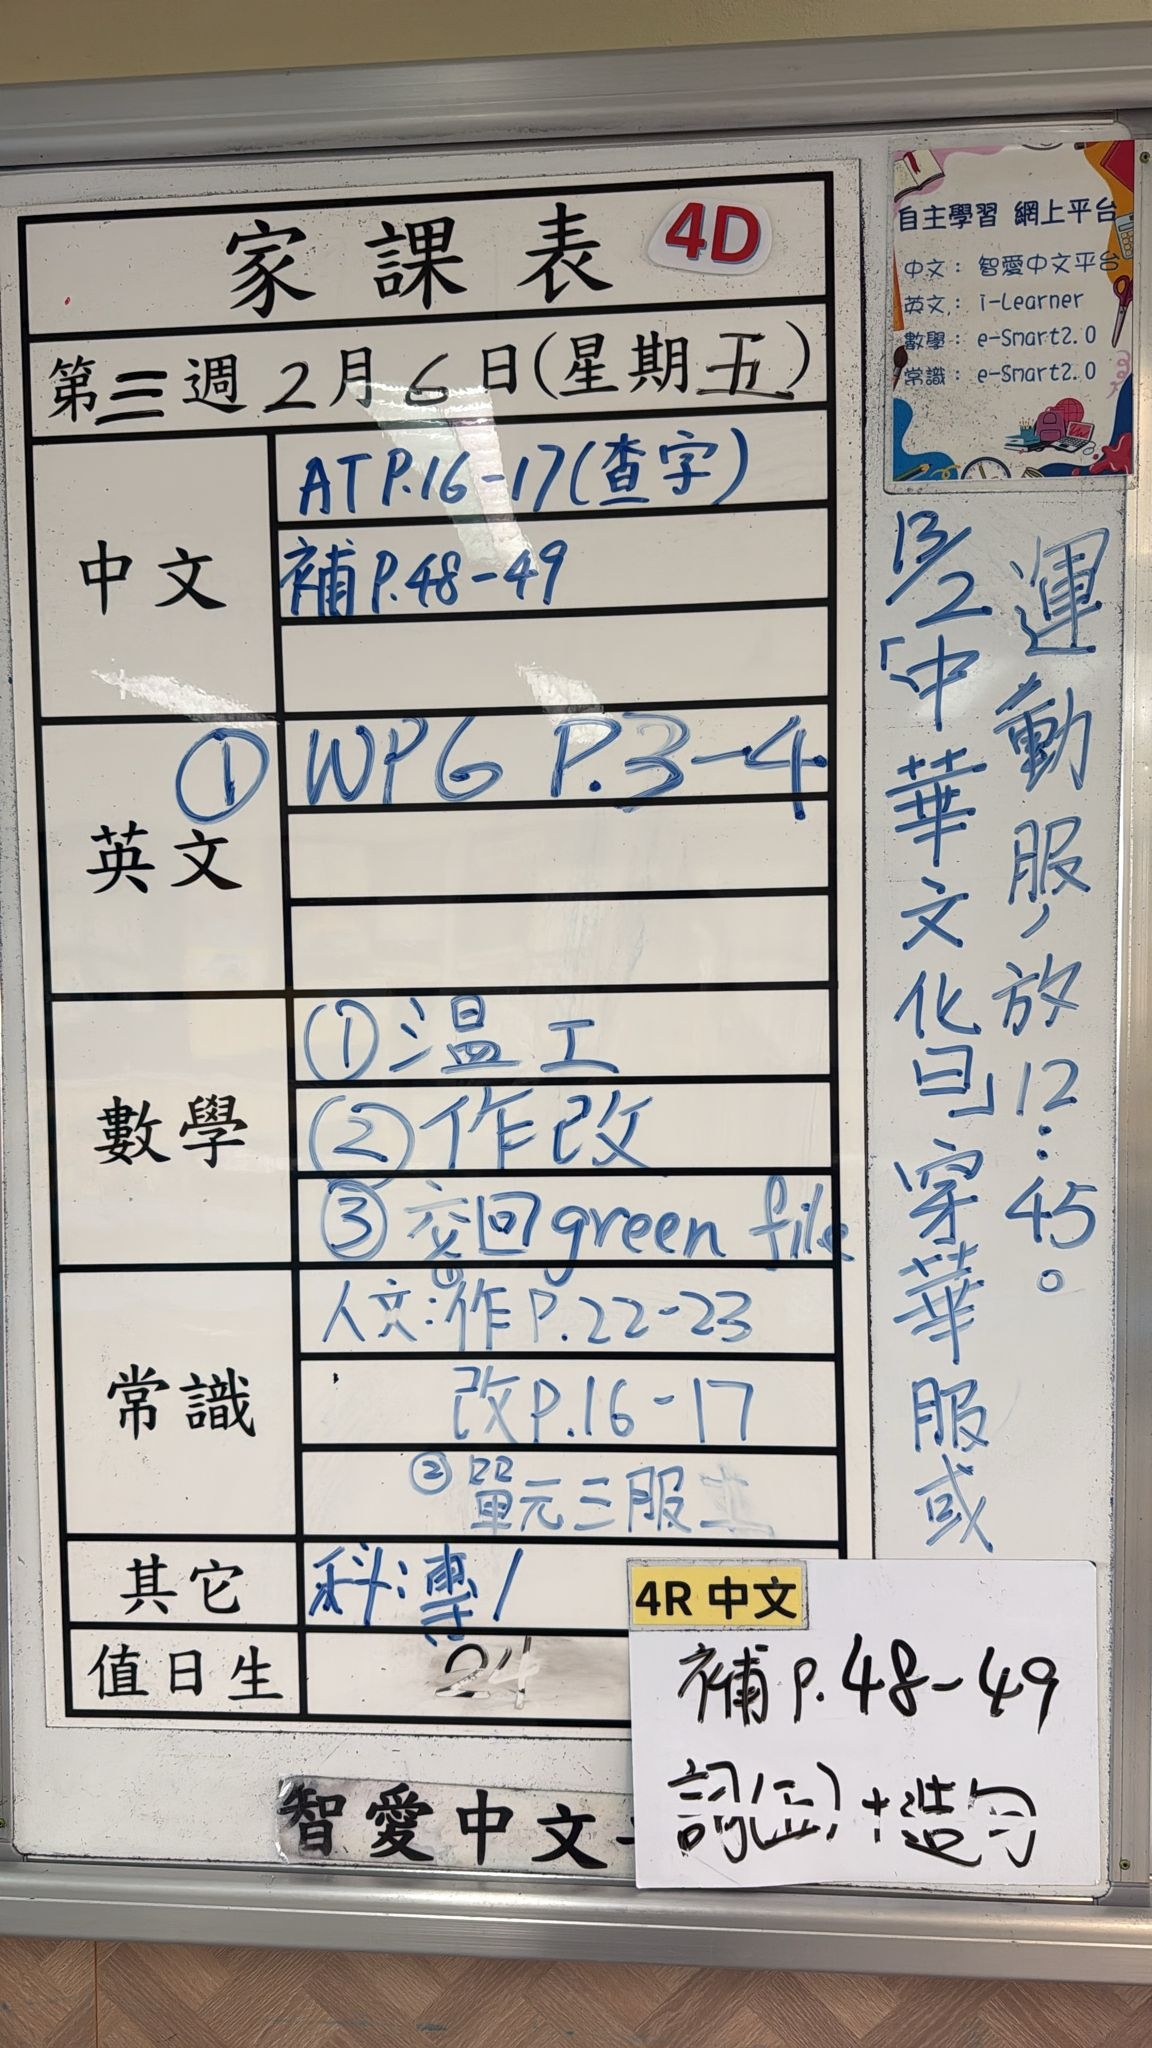 家課表 4D
第三週2月6日(星期五)
中文
AT P.16-17(查字)
補 P.48-49
英文
① WPG P.3-4
數學
①温工
②作改
③交回green file
常識
人文:①作P.22-23
改P.16-17
②單元三服
其它
科:專1
值日生
24
智愛中文
自主學習 網上平台
中文: 智愛中文平台
英文: i-Learner
數學: e-Smart2.0
常識: e-Smart2.0
13/2「中華文化日」穿華服或
運動服,放12:45。
4R 中文
補 P.48-49
詞(五)+造句